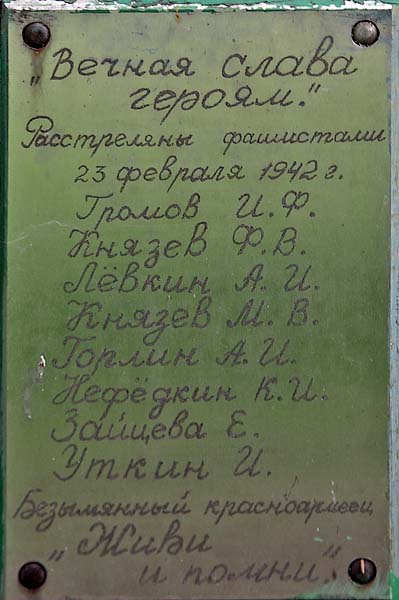 „Вечная слава
героям."
Расстреляны фашистами
23 февраля 1942 г.
Громов И. Ф.
Князев Ф. В.
Лёвкин А. И.
Князев М. В.
Горлин А. И.
Нефёдкин К. И.
Зайцева Е.
Уткин И.
Безымянный красноармеец
„Живи
и помни."